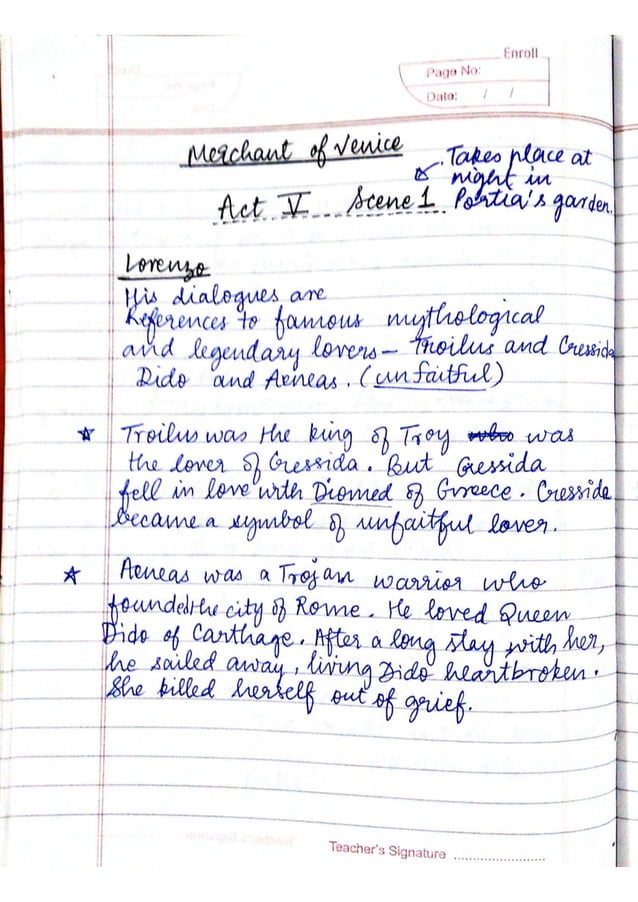 Enroll
Page No:
Date: / /
Merchant of Venice
Act V Scene 1
. Takes place at
night in
Portia's garden.
Lorenzo
His dialogues are
References to famous mythological
and legendary lovers – Troilus and Cressida
Dido and Aeneas. (unfaitful)
Troilus was the king of Troy who was
the lover of Cressida. But Cressida
fell in love with Diomed of Greece. Cressida
became a symbol of unfaitful lover.
Aeneas was a Trojan warrior who
founded the city of Rome. He loved Queen
Dido of Carthage. After a long stay with her,
he sailed away, living Dido heartbroken.
She killed herself out of grief.
Teacher's Signature ........................